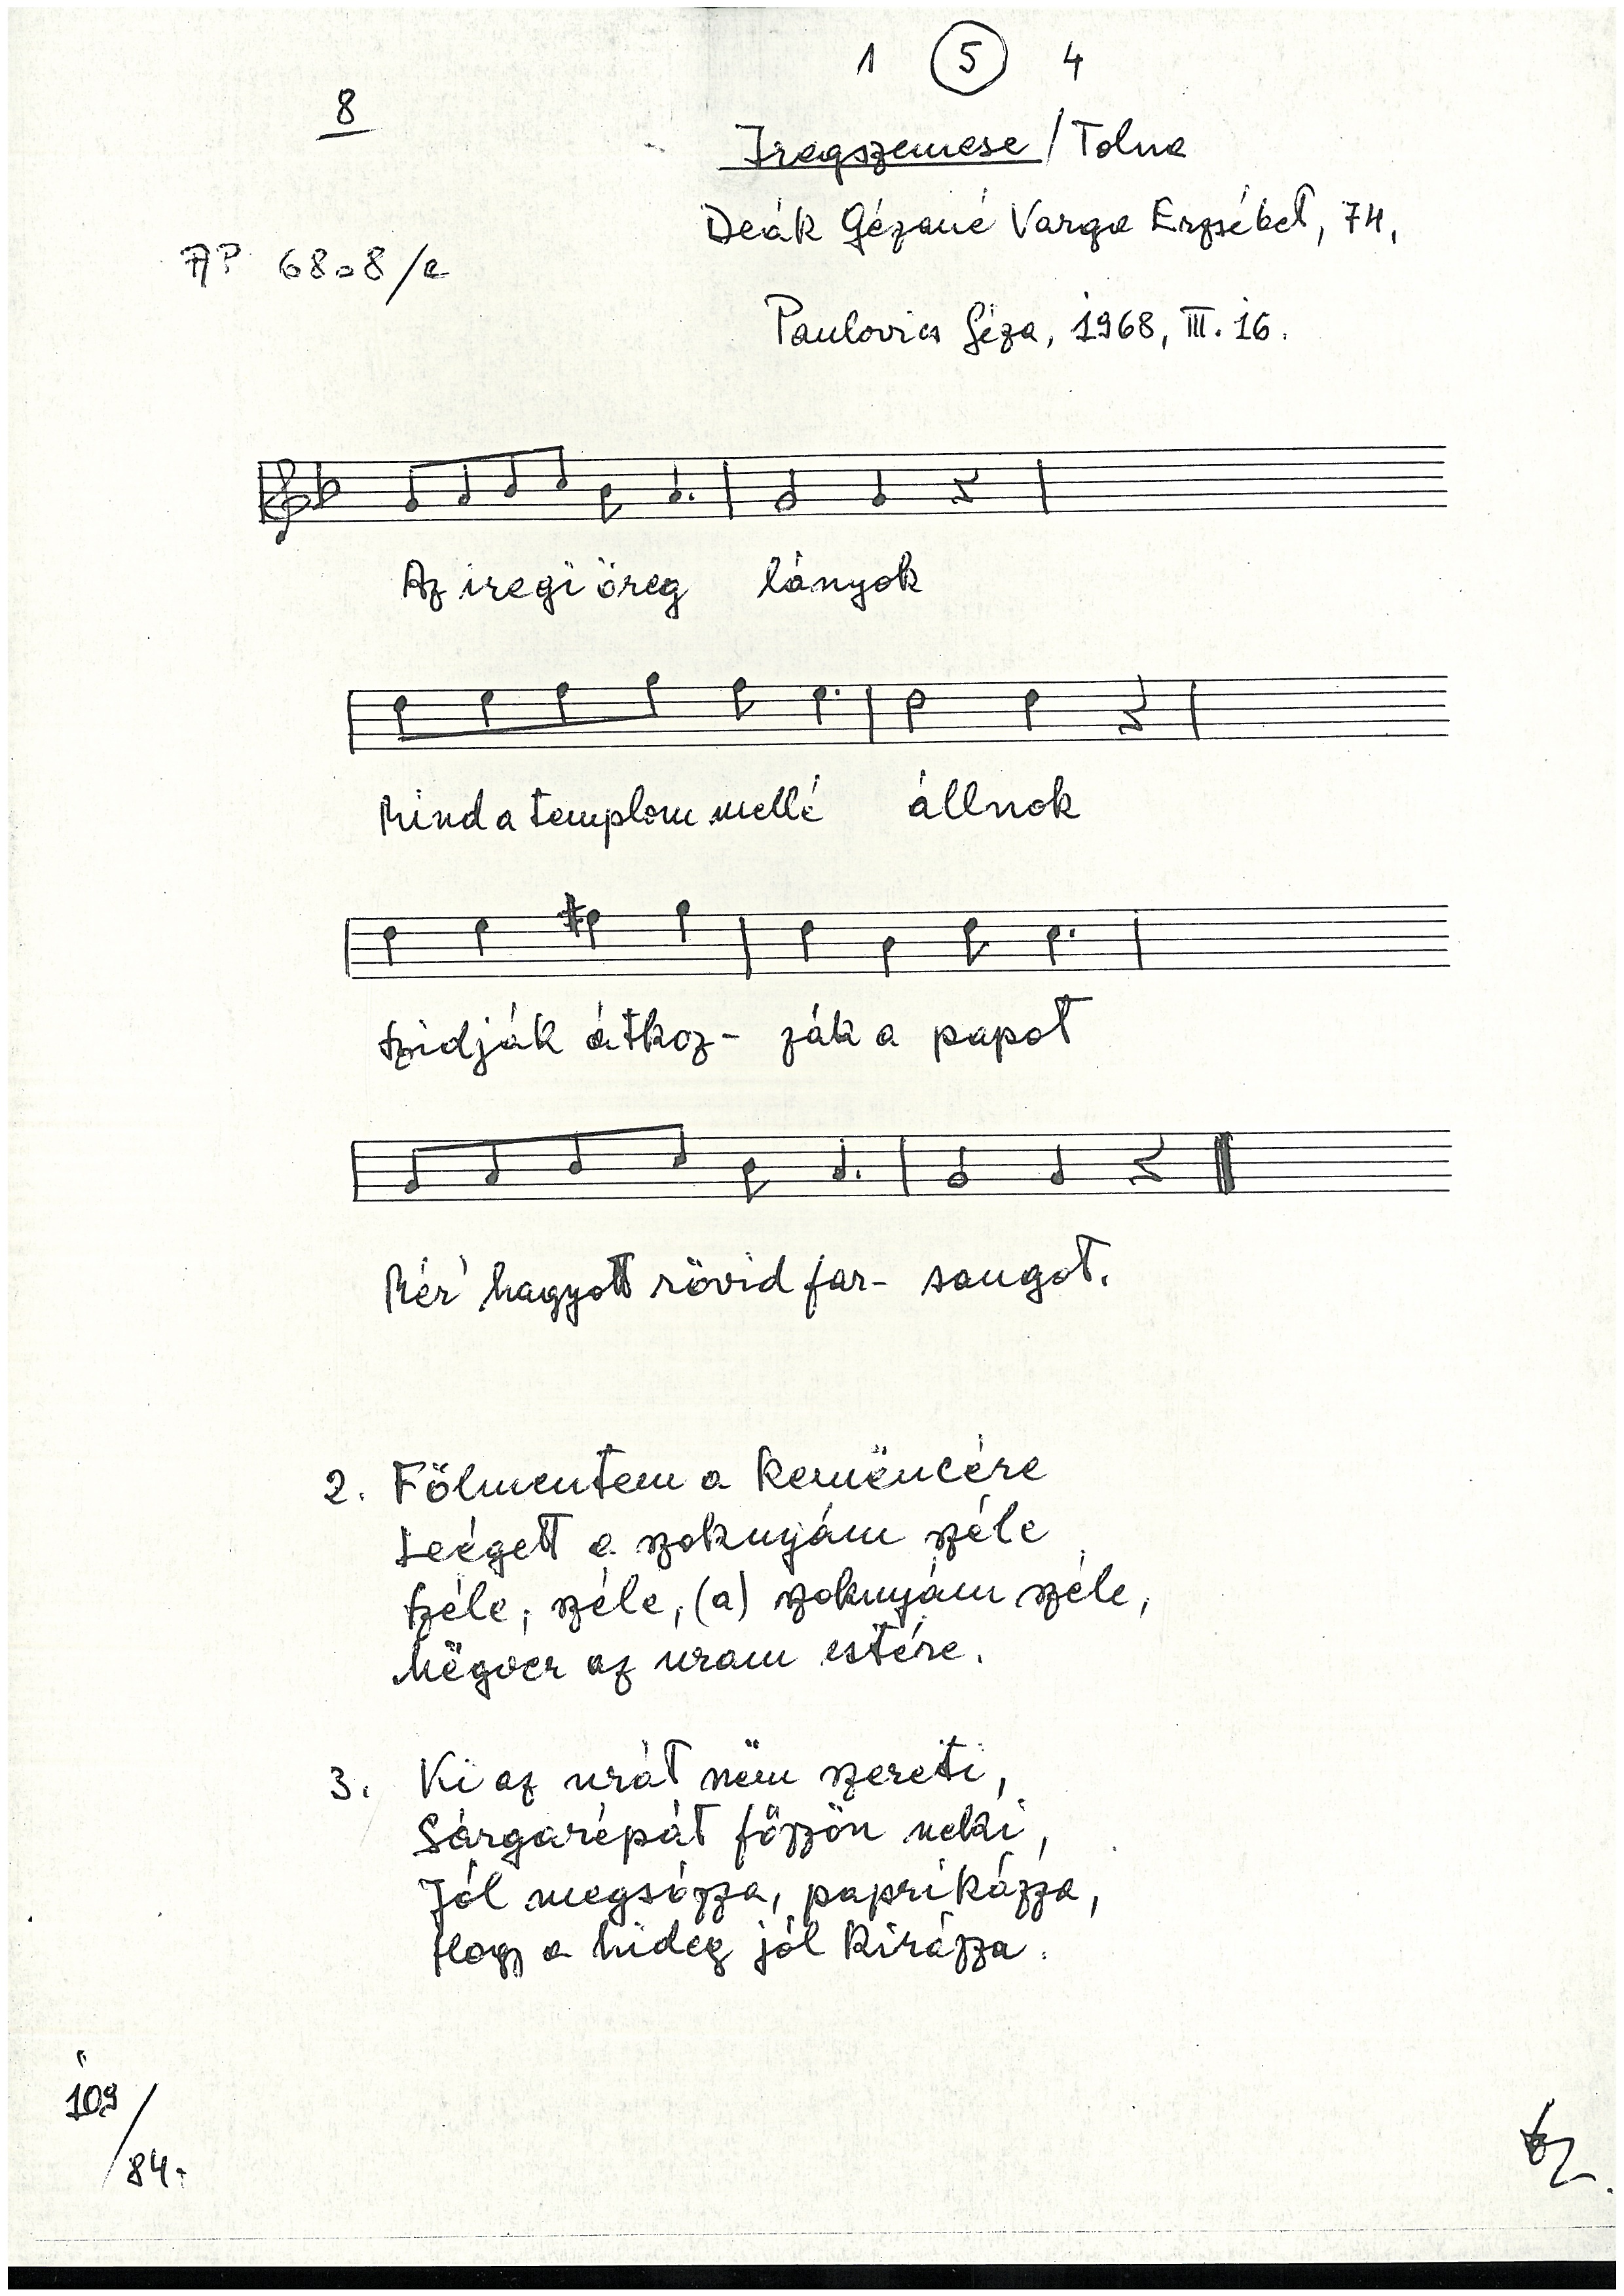 1 5 4
8
Iregszemcse / Tolna
Deák Gézáné Varga Erzsébet, 74,
AP 6808/e
Paulovics Géza, 1968, III. 16.
Az iregi öreg lányok
Mind a templom mellé állnok
Szidják átkoz- zák a papot
Mér' hagyott rövid far- sangot.
2. Fölmentem a kemëncére
Leégett a szoknyám széle
Széle, széle, (a) szoknyám széle,
Mëgver az uram estére.
3. Ki az urát nëm szereti,
Sárgarépát főzzön neki,
Jól megsózza, paprikázza,
Hogy a hideg jól kirázza.
109/84.